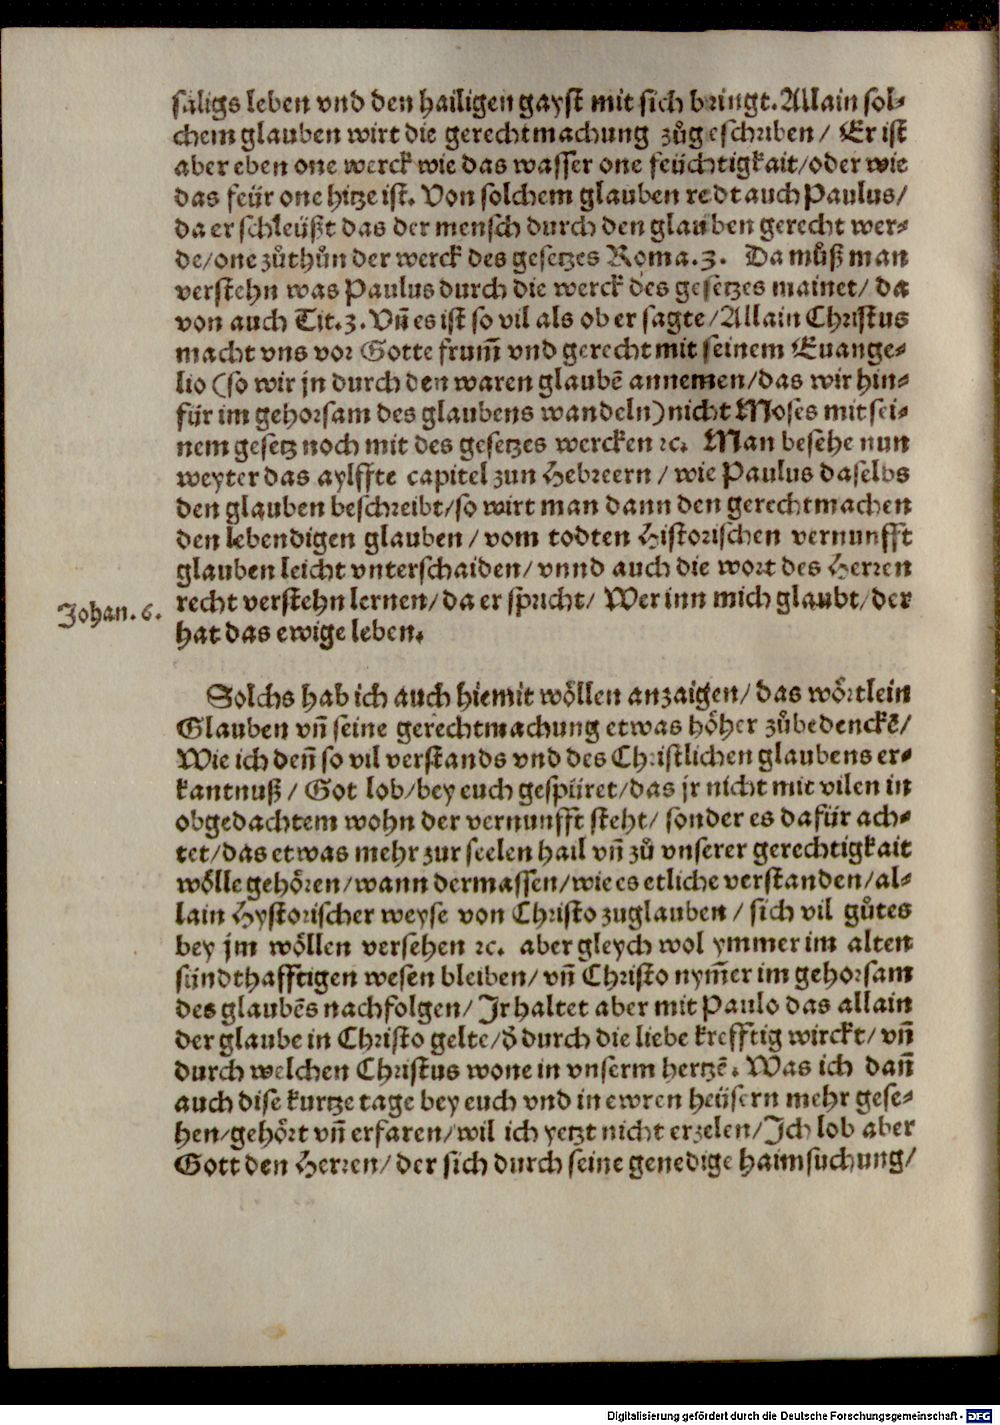 säligs leben vnd den hailigen gayst mit sich bringt. Allain sol-
chem glauben wirt die gerechtmachung zůgeschriben/ Er ist
aber eben one werck wie das wasser one feüchtigkait/oder wie
das feür one hitze ist. Von solchem glauben redt auch Paulus/
da er schleüßt das der mensch durch den glauben gerecht wer-
de/one zůthůn der werck des gesetzes Roma.3. Da můß man
verstehn was Paulus durch die werck des gesetzes mainet/ da
von auch Tit.3. Vñ es ist so vil als ob er sagte/Allain Christus
macht vns vor Gotte frum̃ vnd gerecht mit seinem Euange-
lio (so wir jn durch den waren glaubẽ annemen/das wir hin-
für im gehorsam des glaubens wandeln) nicht Moses mit sei-
nem gesetz noch mit des gesetzes wercken ꝛc. Man besehe nun
weyter das aylffte capitel zun Hebreern/ wie Paulus daselbs
den glauben beschreibt/so wirt man dann den gerechtmachen
den lebendigen glauben/ vom todten Historischen vernunfft
glauben leicht vnterschaiden/ vnnd auch die wort des Herren
Johan.6. recht verstehn lernen/da er spricht/ Wer inn mich glaubt/der
hat das ewige leben.
Solchs hab ich auch hiemit wöllen anzaigen/ das wörtlein
Glauben vñ seine gerechtmachung etwas höher zůbedenckẽ/
Wie ich deñ so vil verstands vnd des Christlichen glaubens er-
kantnuß/ Got lob/bey euch gespüret/das jr nicht mit vilen in
obgedachtem wohn der vernunfft steht/ sonder es dafür ach-
tet/das etwas mehr zur seelen hail vñ zů vnserer gerechtigkait
wölle gehören/wann dermassen/wie es etliche verstanden/al-
lain Hystorischer weyse von Christo zuglauben/ sich vil gůtes
bey jm wöllen versehen ꝛc. aber gleych wol ymmer im alten
sündthafftigen wesen bleiben/ vñ Christo nym̃er im gehorsam
des glaubẽs nachfolgen/ Jr haltet aber mit Paulo das allain
der glaube in Christo gelte/ð durch die liebe krefftig wirckt/ vñ
durch welchen Christus wone in vnserm hertzẽ. Was ich dañ
auch dise kurtze tage bey euch vnd in ewren heüsern mehr gese-
hen/gehört vñ erfaren/wil ich yetzt nicht erzelen/Jch lob aber
Gott den Herren/ der sich durch seine genedige haimsuchung/
Digitalisierung gefördert durch die Deutsche Forschungsgemeinschaft - DFG